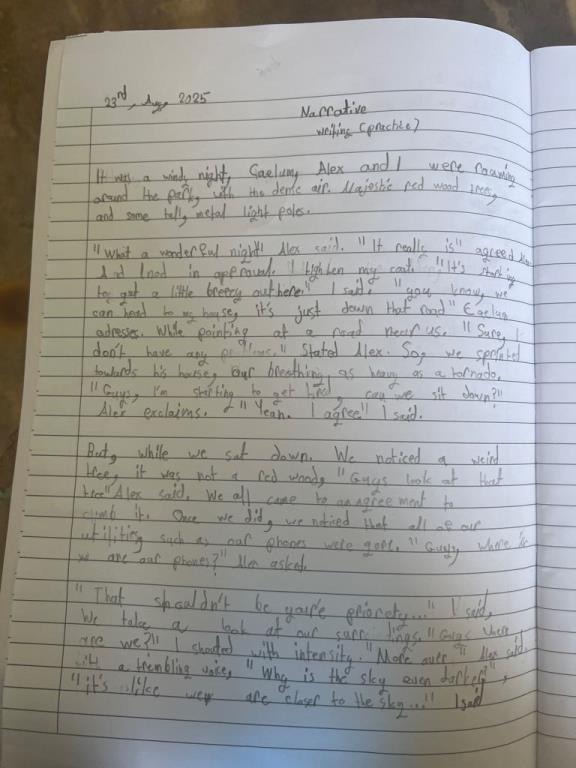 23rd, Aug, 2025
Narrative
writing (practice)
It was a windy night, Caelum, Alex and I were roaming
around the park, with the dense air. Majestic red wood trees,
and some tall, metal light poles.
"What a wonderful night! Alex said. "It really is" agreed
And I nod in approval. I tighten my coat. "It's starting
to get a little breezy out here." I said. "you know, we
can head to my house, it's just down that road" Caelum
adresses. While pointing at a road near us. "Sure, I
don't have any problems." Stated Alex. So, we sprinted
towards his house, our breathing as heavy as a tornado.
"Guys, I'm starting to get tired, can we sit down?"
Alex exclaims. "Yeah. I agree" I said.
But, while we sat down. We noticed a weird
tree, it was not a red wood, "Guys look at that
tree" Alex said. We all came to an agreement to
climb it. Once we did, we noticed that all of our
utilities, such as our phones were gone. "Guys, where
are our phones?" Alex asked.
"That shouldn't be you're priority..." I said,
We take a look at our surroundings. "Guys where
are we?" I shouted with intensity. "More over," Alex said
with a trembling voice, "Why is the sky even darker?",
"it's like we are closer to the sky..." I said